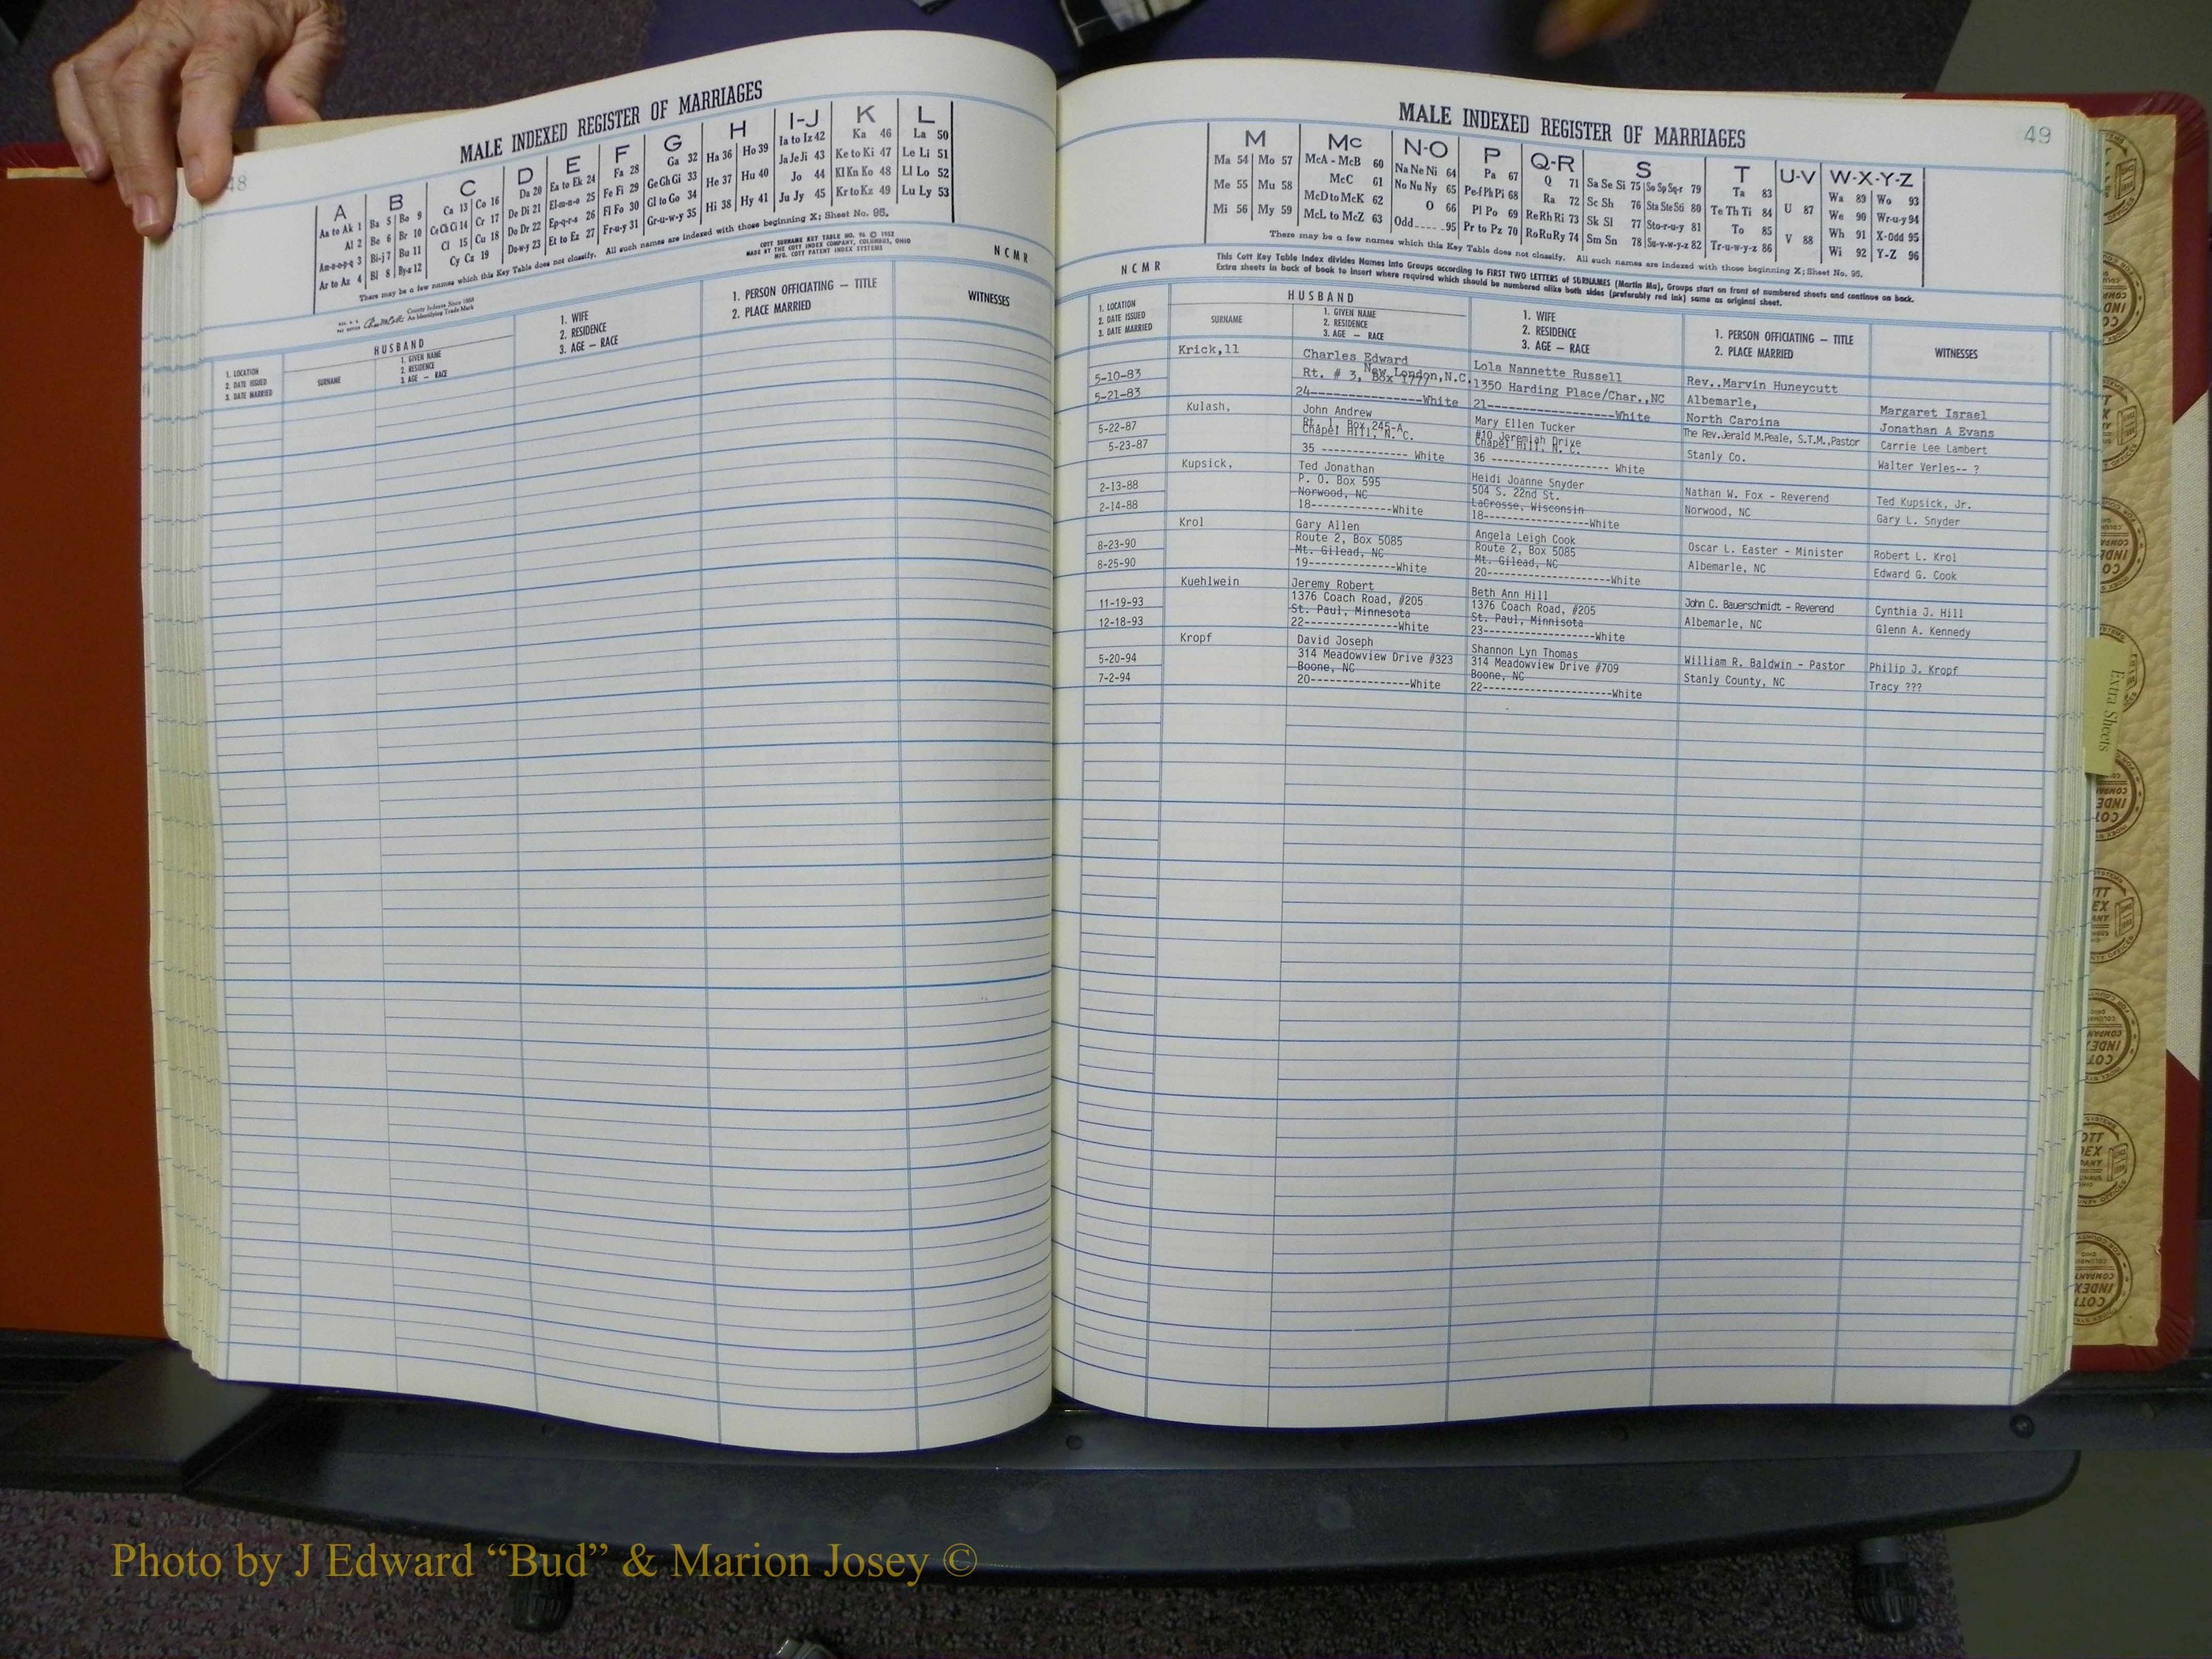 48
MALE INDEXED REGISTER OF MARRIAGES
A B C D E F G H I-J K L
Aa to Ak 1 Ba 5 Bo 9 Ca 13 Co 16 Da 20 Ea to Ek 24 Fa 28 Ga 32 Ha 36 Ho 39 Ia to Iz 42 Ka 46 La 50
Al 2 Be 6 Br 10 Ce Ch Ci 14 Cr 17 De Di 21 El-m-n-o 25 Fe Fi 29 Ge Gh Gi 33 He 37 Hu 40 Ja Je Ji 43 Ke to Ki 47 Le Li 51
Am-n-o-p-q 3 Bi-j 7 Bu 11 Cl 15 Cu 18 Do Dr 22 Ep-q-r-s 26 Fl Fo 30 Gl to Go 34 Hi 38 Hy 41 Jo 44 Kl Kn Ko 48 Ll Lo 52
Ar to Az 4 Bl 8 By-z 12 Cy Cz 19 Du-w-y 23 Et to Ez 27 Fr-u-y 31 Gr-u-w-y 35 Ju Jy 45 Kr to Kz 49 Lu Ly 53
There may be a few names which this Key Table does not classify. All such names are indexed with those beginning X; Sheet No. 95.
County Indexes Since 1888
An Identifying Trade Mark
COTT SURNAME KEY TABLE NO. 96 © 1952
MADE BY THE COTT INDEX COMPANY, COLUMBUS, OHIO
MFG. COTT PATENT INDEX SYSTEMS
N C M R
1. LOCATION
2. DATE ISSUED
3. DATE MARRIED
HUSBAND
SURNAME
1. GIVEN NAME
2. RESIDENCE
3. AGE — RACE
1. WIFE
2. RESIDENCE
3. AGE — RACE
1. PERSON OFFICIATING — TITLE
2. PLACE MARRIED
WITNESSES
MALE INDEXED REGISTER OF MARRIAGES
49
M Mc N-O P Q-R S T U-V W-X-Y-Z
Ma 54 Mo 57 McA - McB 60 Na Ne Ni 64 Pa 67 Q 71 Sa Se Si 75 So Sp Sq-r 79 Ta 83 U 87 Wa 89 Wo 93
Me 55 Mu 58 McC 61 No Nu Ny 65 Pe-f Ph Pi 68 Ra 72 Sc Sh 76 Sta Ste Sti 80 Te Th Ti 84 V 88 We 90 Wr-u-y 94
Mi 56 My 59 McD to McK 62 O 66 Pl Po 69 Re Rh Ri 73 Sk Sl 77 Sto-r-u-y 81 To 85 Wh 91 X-Odd 95
McL to McZ 63 Odd 95 Pr to Pz 70 Ro Ru Ry 74 Sm Sn 78 Su-v-w-y-z 82 Tr-u-w-y-z 86 Wi 92 Y-Z 96
There may be a few names which this Key Table does not classify. All such names are indexed with those beginning X; Sheet No. 95.
N C M R
This Cott Key Table Index divides Names into Groups according to FIRST TWO LETTERS of SURNAMES (Martin Ma), Groups start on front of numbered sheets and continue on back.
Extra sheets in back of book to insert where required which should be numbered alike both sides (preferably red ink) same as original sheet.
1. LOCATION
2. DATE ISSUED
3. DATE MARRIED
HUSBAND
SURNAME
1. GIVEN NAME
2. RESIDENCE
3. AGE — RACE
1. WIFE
2. RESIDENCE
3. AGE — RACE
1. PERSON OFFICIATING — TITLE
2. PLACE MARRIED
WITNESSES
Krick,ll Charles Edward Lola Nannette Russell
5-10-83 Rt. # 3, Box 1777 New London,N.C. 1350 Harding Place/Char.,NC Rev..Marvin Huneycutt
5-21-83 24----------------White 21------------------White Albemarle, Margaret Israel
North Caroina Jonathan A Evans
Kulash, John Andrew Mary Ellen Tucker
5-22-87 Rt. 1, Box 245-A #10 Jeremiah Drive The Rev.Jerald M.Peale, S.T.M.,Pastor Carrie Lee Lambert
Chapel Hill, N. C. Chapel Hill, N. C.
5-23-87 35 ------------- White 36 ----------------- White Stanly Co. Walter Verles-- ?
Kupsick, Ted Jonathan Heidi Joanne Snyder
2-13-88 P. O. Box 595 504 S. 22nd St. Nathan W. Fox - Reverend Ted Kupsick, Jr.
Norwood, NC LaCrosse, Wisconsin
2-14-88 18-------------White 18-----------------White Norwood, NC Gary L. Snyder
Krol Gary Allen Angela Leigh Cook
8-23-90 Route 2, Box 5085 Route 2, Box 5085 Oscar L. Easter - Minister Robert L. Krol
Mt. Gilead, NC Mt. Gilead, NC
8-25-90 19--------------White 20-------------------White Albemarle, NC Edward G. Cook
Kuehlwein Jeremy Robert Beth Ann Hill
11-19-93 1376 Coach Road, #205 1376 Coach Road, #205 John C. Bauerschmidt - Reverend Cynthia J. Hill
St. Paul, Minnesota St. Paul, Minnisota
12-18-93 22--------------White 23-----------------White Albemarle, NC Glenn A. Kennedy
Kropf David Joseph Shannon Lyn Thomas
5-20-94 314 Meadowview Drive #323 314 Meadowview Drive #709 William R. Baldwin - Pastor Philip J. Kropf
Boone, NC Boone, NC
7-2-94 20----------------White 22--------------------White Stanly County, NC Tracy ???
Extra Sheets
Photo by J Edward “Bud” & Marion Josey ©